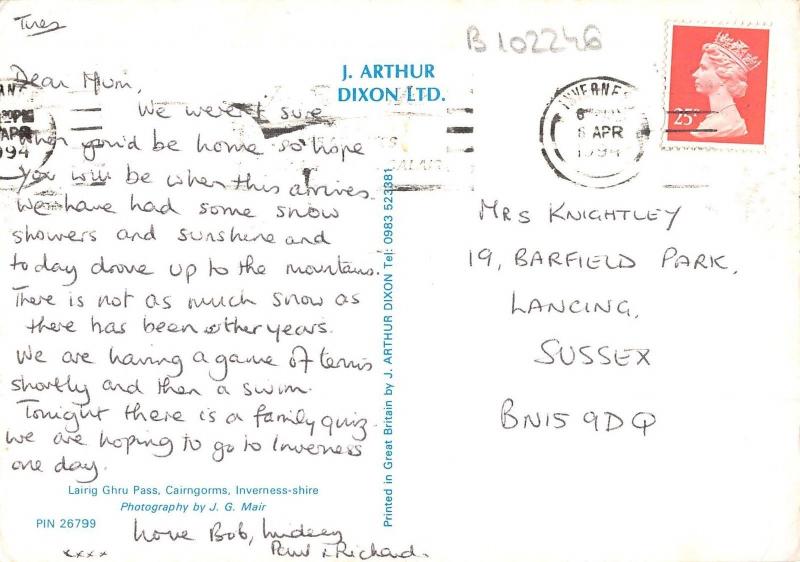 Tues
B 102246
J. ARTHUR
DIXON LTD.
INVERNESS
6 APR
1994
25P
Dear Mum,
We weren't sure
when you'd be home so hope
you will be when this arrives.
We have had some snow
showers and sunshine and
today drove up to the mountains.
There is not as much snow as
there has been other years.
We are having a game of tennis
shortly and then a swim.
Tonight there is a family quiz.
We are hoping to go to Inverness
one day.
Lairig Ghru Pass, Cairngorms, Inverness-shire
Photography by J. G. Mair
PIN 26799
Love Bob, Lindsey
Paul & Richard.
xxxx
Printed in Great Britain by J. ARTHUR DIXON Tel: 0983 523381
MRS KNIGHTLEY
19, BARFIELD PARK,
LANCING,
SUSSEX
BN15 9DQ